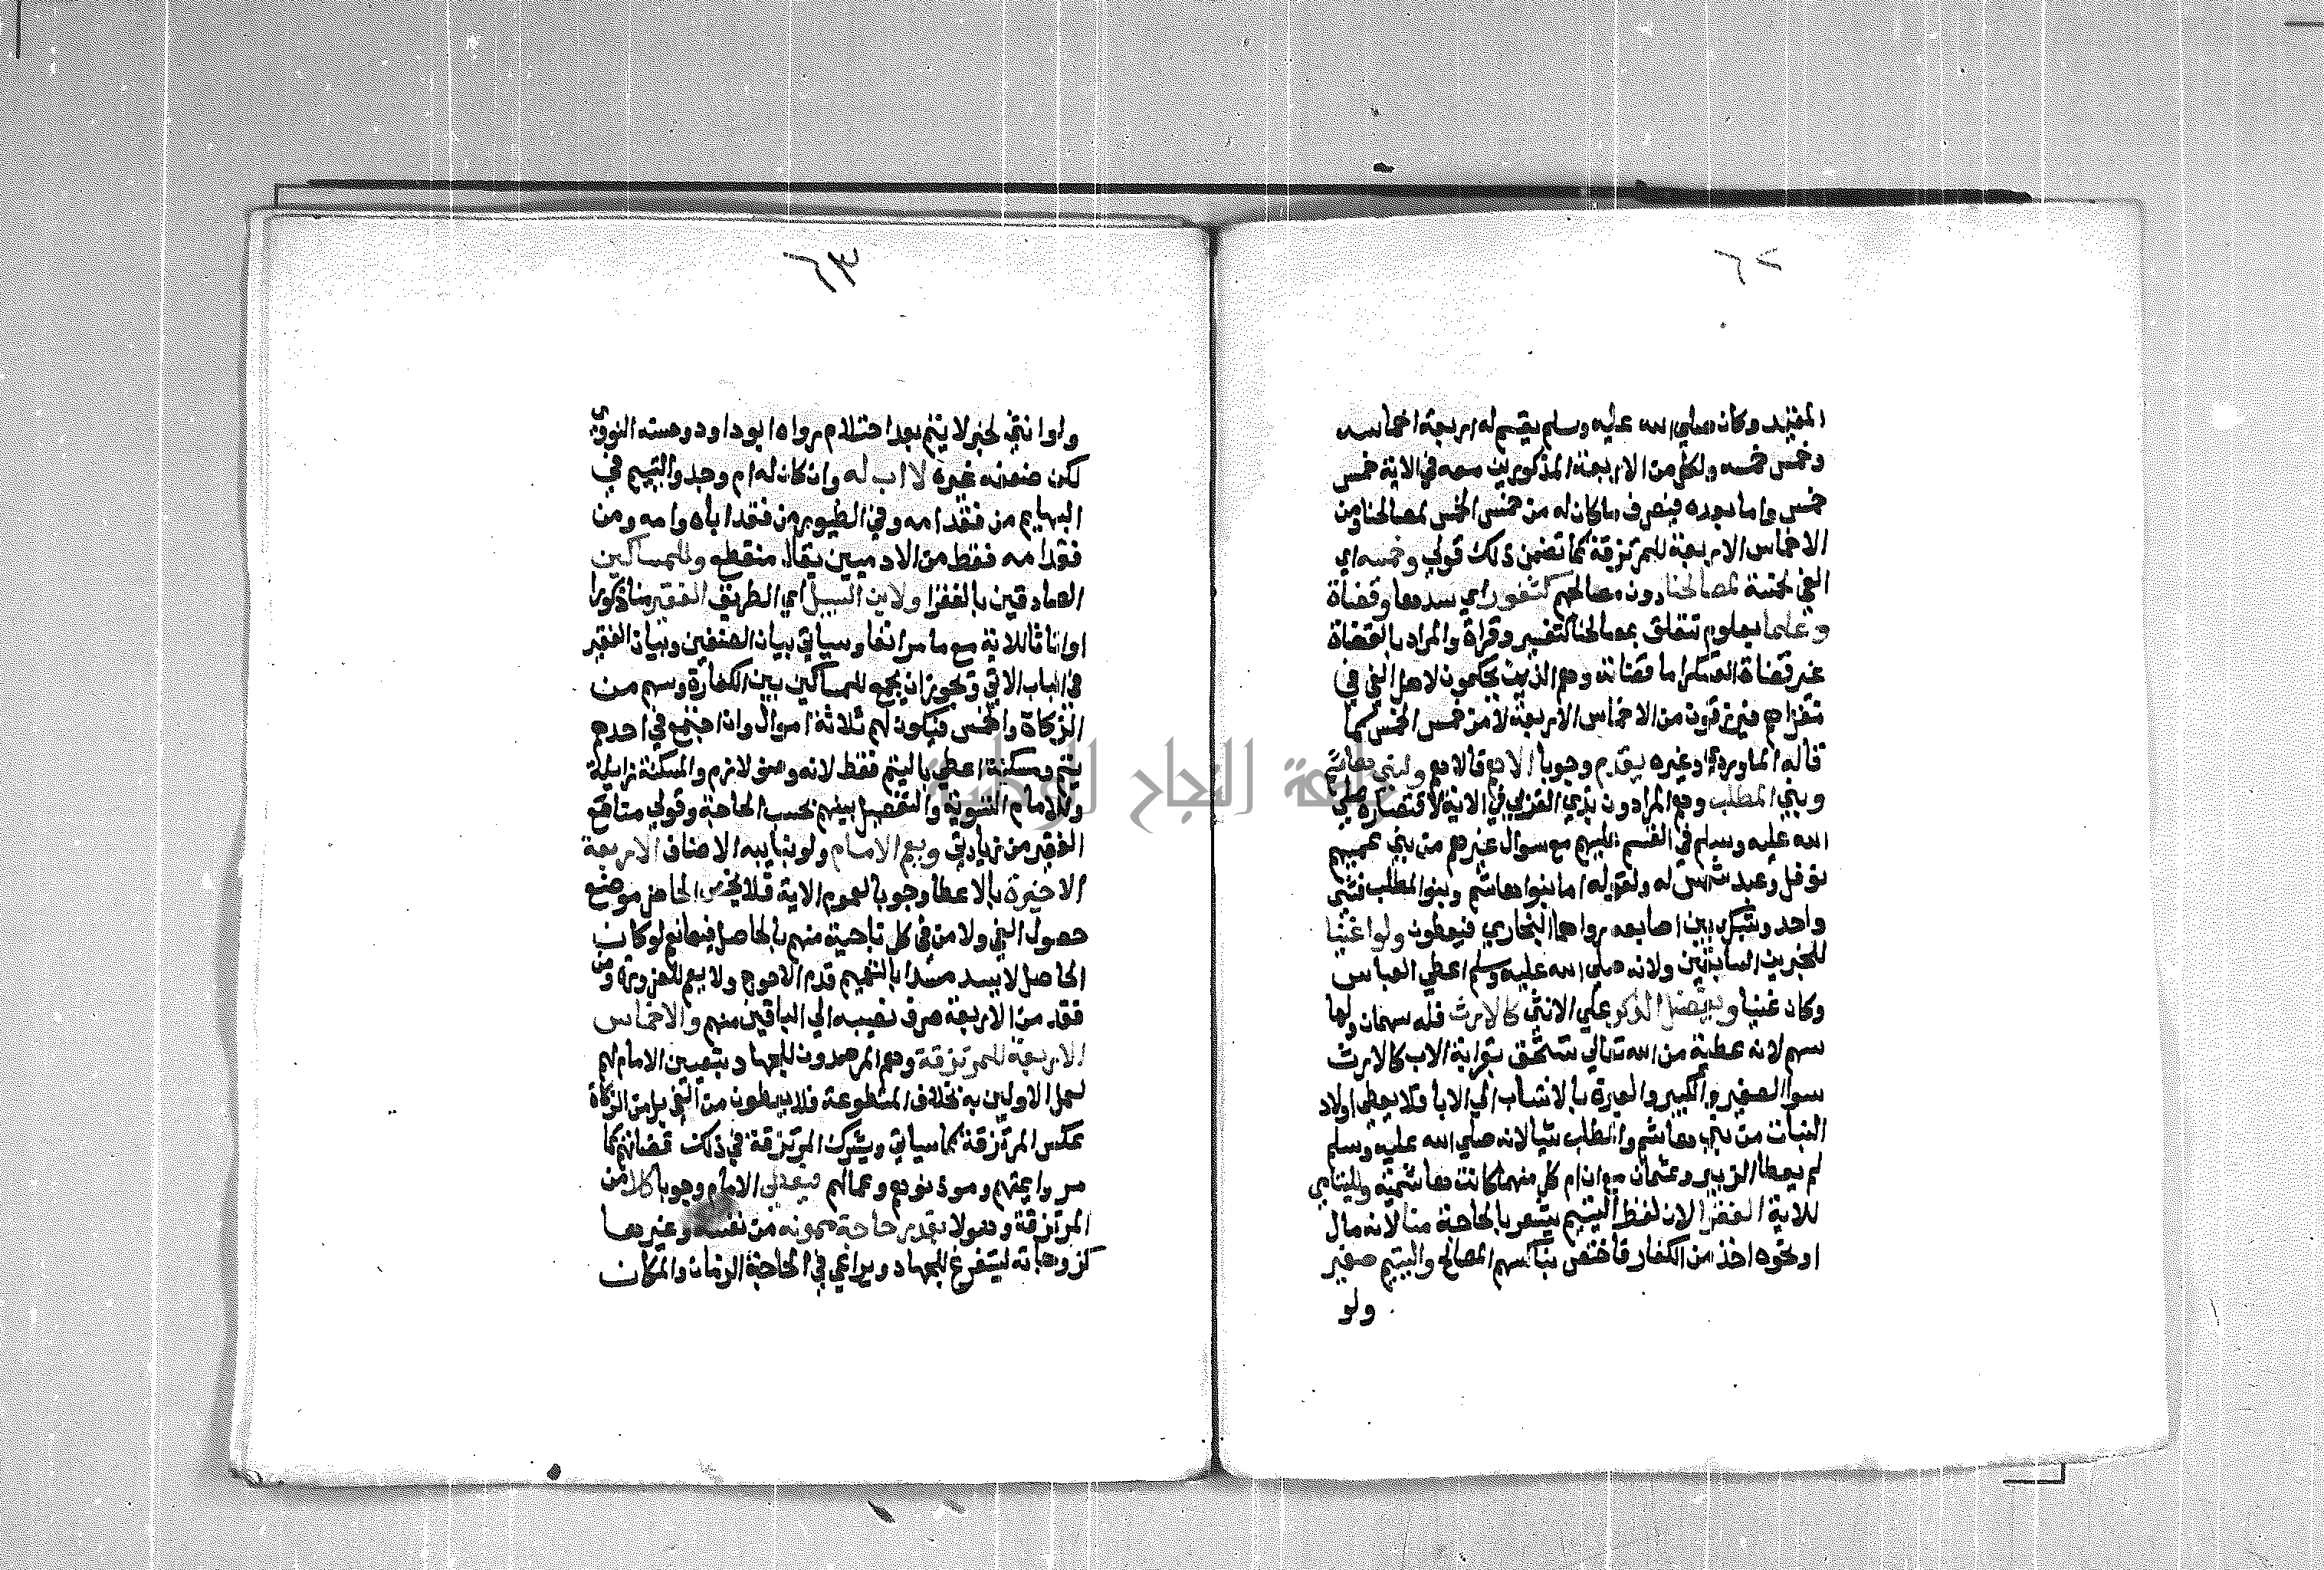 ٦٢
المفيد وكان صلي الله عليه وسلم يقسم له اربعة اخماسه
وخمس خمسه ولكل من الاربعة المذكورين معه في الاية خمس
خمس واما بعده فيصرف ما كان له من خمس الخمس لمصالحنا ومن
الاخماس الاربعة للمرتزقة كما تضمن ذلك قولي وخمسه اي
الفي لخمسة لمصالحنا دون مصالحهم كثغور اي سدها وقضاة
وعلما بعلوم تتعلق بمصالحنا كتفسير وقراة والمراد بالقضاة
غير قضاة العسكر اما قضاته وهم الذين يحكمون لاهل الفي في
مغزاهم فيرزقون من الاخماس الاربعة لا من خمس الخمس كما
قاله الماوردي وغيره يقدم وجوبا الاهم فالاهم ولبني هاشم
وبني المطلب وهم المراد بذي القربي في الاية لاقتصاره صلي
الله عليه وسلم في القسم عليهم مع سوال غيرهم من بني عميهم
نوفل وعبد شمس له ولقوله اما بنوا هاشم وبنوا المطلب فشي
واحد وشبك بين اصابعه رواهما البخاري فيعطون ولو اغنيا
للخبرين السابقين ولانه صلي الله عليه وسلم اعطي العباس
وكان غنيا ويفضل الذكر علي الانثي كالارث فله سهمان ولها
سهم لانه عطية من الله تعالي تستحق بقرابة الاب كالارث
سوا الصغير والكبير والعبرة بالانتساب الي الابا فلا يعطي اولاد
البنات من بني هاشم والمطلب شيا لانه صلي الله عليه وسلم
لم يعط الزبير وعثمان مع ان ام كل منهما كانت هاشمية ولليتامي
للاية الفقرا لان لفظ اليتيم يشعر بالحاجة منا لانه مال
او نحوه اخذ من الكفار فاختص بنا كسهم المصالح واليتيم صغير
ولو
٦٣
ولو انثي لخبر لا يتم بعد احتلام رواه ابو داود وحسنه النووي
لكن ضعفه غيره لا اب له وان كان له ام وجد واليتيم في
البهايم من فقد امه وفي الطيور من فقد اباه وامه ومن
فقد امه فقط من الادميين يقال منقطع وللمساكين
الصادقين بالفقرا ولابن السبيل اي الطريق الفقير منا ذكورا
او اناثا للاية مع ما مر انفا وسياتي بيان الصنفين وبيان الفقير
في الباب الاتي وتجويز ان يجمع للمساكين بين الكفارة وسهم من
الزكاة والخمس فيكون لهم ثلاثة اموال وان اجتمع في احدهم
يتم ومسكنة اعطي باليتم فقط لانه وصف لازم والمسكنة زايلة
وللامام التسوية والتفضيل بينهم بحسب الحاجة وقولي منا مع
الفقير من زيادتي ويعم الامام ولو بنايبه الاصناف الاربعة
الاخيرة بالاعطا وجوبا لعموم الاية فلا يخص الحاضر موضع
حصول الفي ولا من في كل ناحية منهم بالحاصل فيها نعم لو كان
الحاصل لا يسد مسدا بالتعميم قدم الاحوج ولا يعم للضرورة ومن
فقد من الاربعة صرف نصيبه الي الباقين منهم والاخماس
الاربعة للمرتزقة وهم المرصدون للجهاد بتعيين الامام لهم
لعمل الاولين به بخلاف المتطوعة فلا يعطون من الفي بل من الزكاة
عكس المرتزقة كما سياتي ويشرك المرتزقة في ذلك قضاتهم كما
مر وايمتهم ومؤذنوهم وعمالهم فيعطي الامام وجوبا كلا من
المرتزقة وهولا بقدر حاجة ممونه من نفسه وغيرها
كزوجاته ليتفرغ للجهاد ويراعي في الحاجة الزمان والمكان
جامعة النجاح الوطنية